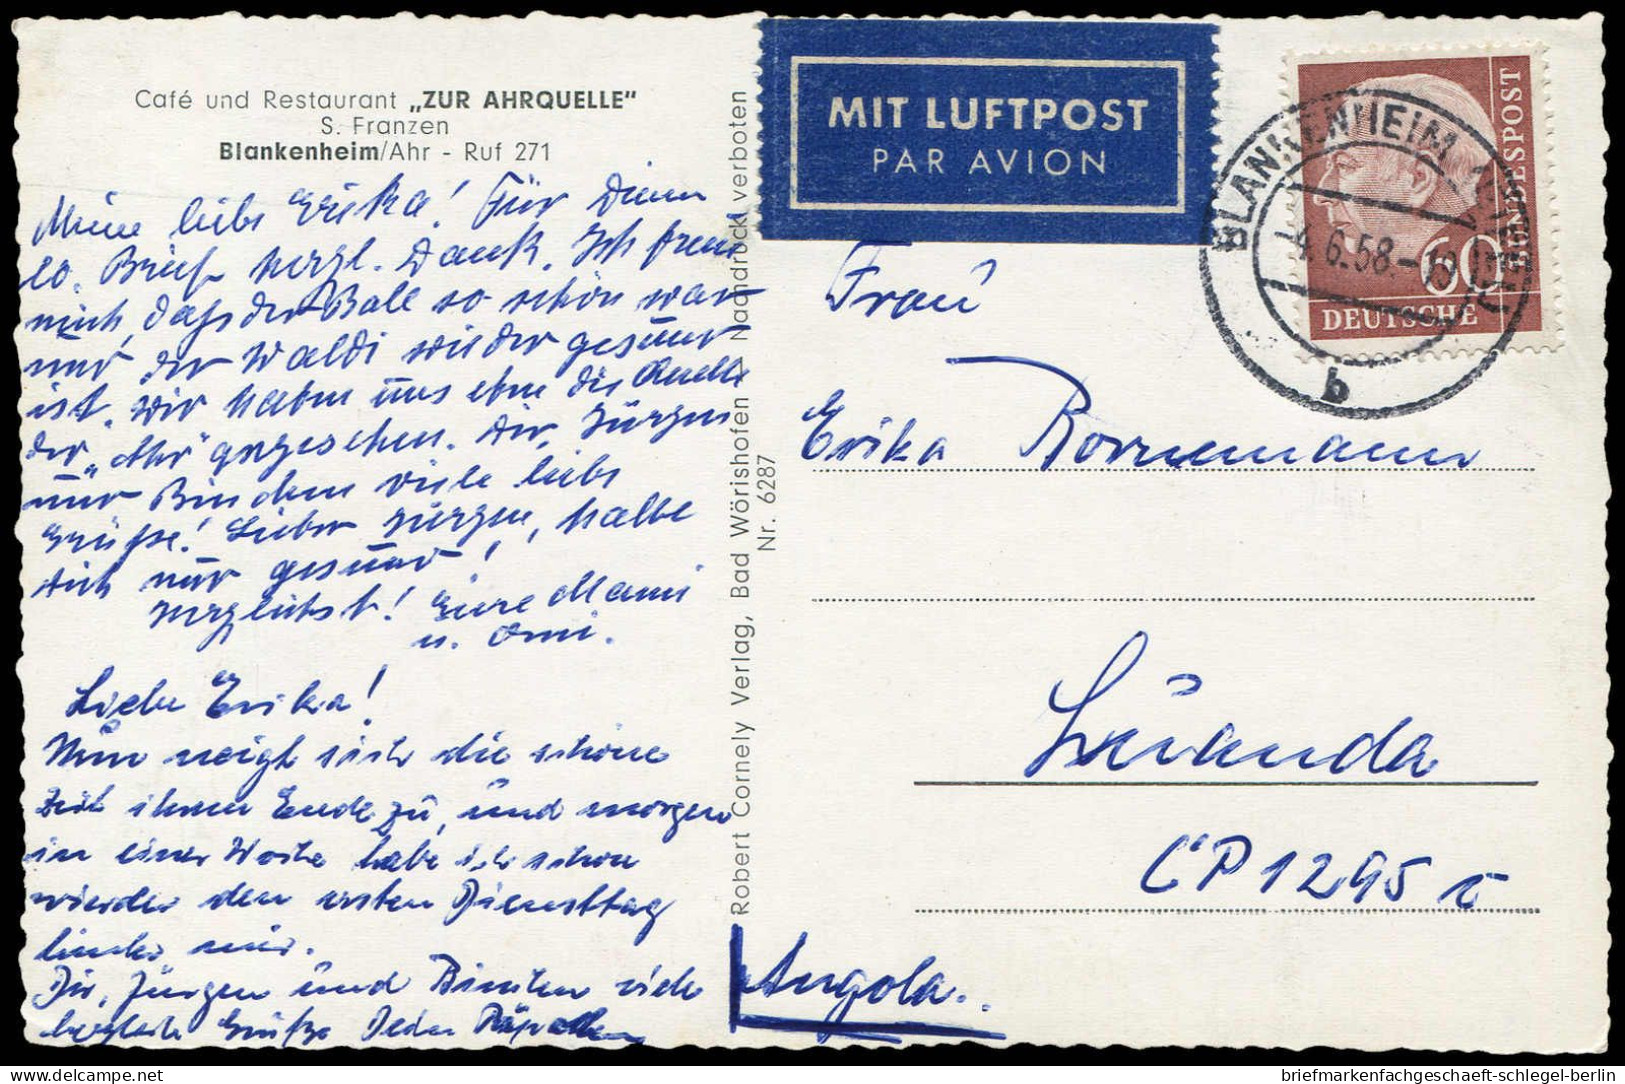 Café und Restaurant „ZUR AHRQUELLE"
S. Franzen
Blankenheim/Ahr - Ruf 271
Meine liebe Erika! Für Deinen
lb. Brief herzl. Dank. Ich freue
mich, daß der Ball so schön war
und der Waldi wieder gesund
ist. Wir haben uns eben die Quelle
der „Ahr" angesehen. Dir, Jürgen
und Binchen viele liebe
Grüße! Lieber Jürgen, halte
dich nur gesund!
Herzlichst! Eure Mami
u. Omi.
Liebe Erika!
Nun neigt sich die schöne
Zeit ihrem Ende zu, und morgen
in einer Woche habe ich schon
wieder den ersten Diensttag
hinter mir.
Dir, Jürgen und viele
herzliche Grüße Dein
Robert Cornely Verlag, Bad Wörishofen Nachdruck verboten
Nr. 6287
MIT LUFTPOST
PAR AVION
BLANKENHEIM (AHR)
4.6.58.-19
b
60
DEUTSCHE
BUNDESPOST
Frau
Erika Bornemann
Luanda
CP 1295 c
Angola.
briefmarkenfachgeschaeft-schlegel-berlin